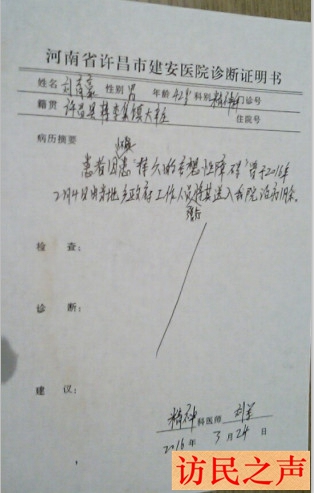 河南省许昌市建安医院诊断证明书
姓名 性别 男 年龄 42岁 科别 精神 门诊号
籍贯 许昌县 住院号
病历摘要
患者因患“持久的妄想性障碍”曾于2016年
2月4日由当地乡政府工作人员 送入我院治疗
检 查:
诊 断:
建 议:
精神科医师
2016年 3月24日
访民之声